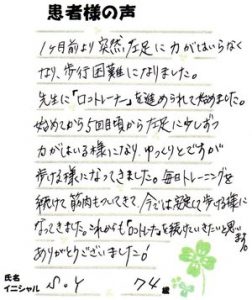 患者様の声
1ヶ月前より突然左足に力がはいらなく
なり、歩行困難になりました。
先生に「ロコトレーナー」を進められて始めました。
始めてから5回目頃から左足に少しずつ
力がはいる様になり、ゆっくりとですが
歩ける様になってきました。毎日トレーニングを
続けて筋肉もついてきて、今では
歩ける様に
なってきました。これからも「ロコトレ」を続けていきたいと思います。
ありがとうございました!
氏名
イニシャル S.Y 74歳